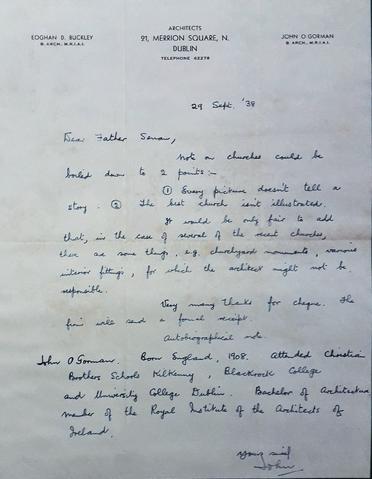 ARCHITECTS
EOGHAN D. BUCKLEY
B. ARCH., M.R.I.A.I.
21, MERRION SQUARE, N.
DUBLIN
TELEPHONE 62278
JOHN O GORMAN
B. ARCH., M.R.I.A.I.
29 Sept. '38
Dear Father Senan,
Note on churches could be
boiled down to 2 points:-
(1) Every picture doesn't tell a
story. (2) The best church isn't illustrated.
It would be only fair to add
that, in the case of several of the recent churches,
there are some things, e.g. churchyard monuments, various
interior fittings, for which the architect might not be
responsible.
Very many thanks for cheque. The
firm will send a formal receipt.
Autobiographical note.
John O'Gorman. Born England, 1908. Attended Christian
Brothers Schools Kilkenny, Blackrock College
and University College Dublin. Bachelor of Architecture
member of the Royal Institute of the Architects of
Ireland.
John